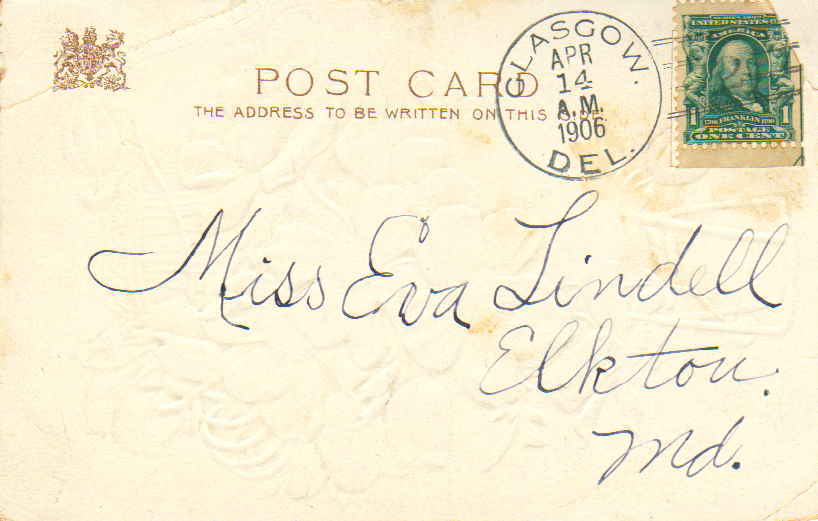 POST CARD
THE ADDRESS TO BE WRITTEN ON THIS
GLASGOW.
APR
14
A.M.
1906
DEL.
SERIES 1902
UNITED STATES OF
AMERICA
1 FRANKLIN 1
POSTAGE
ONE CENT
Miss Eva Lindell
Elkton.
Md.